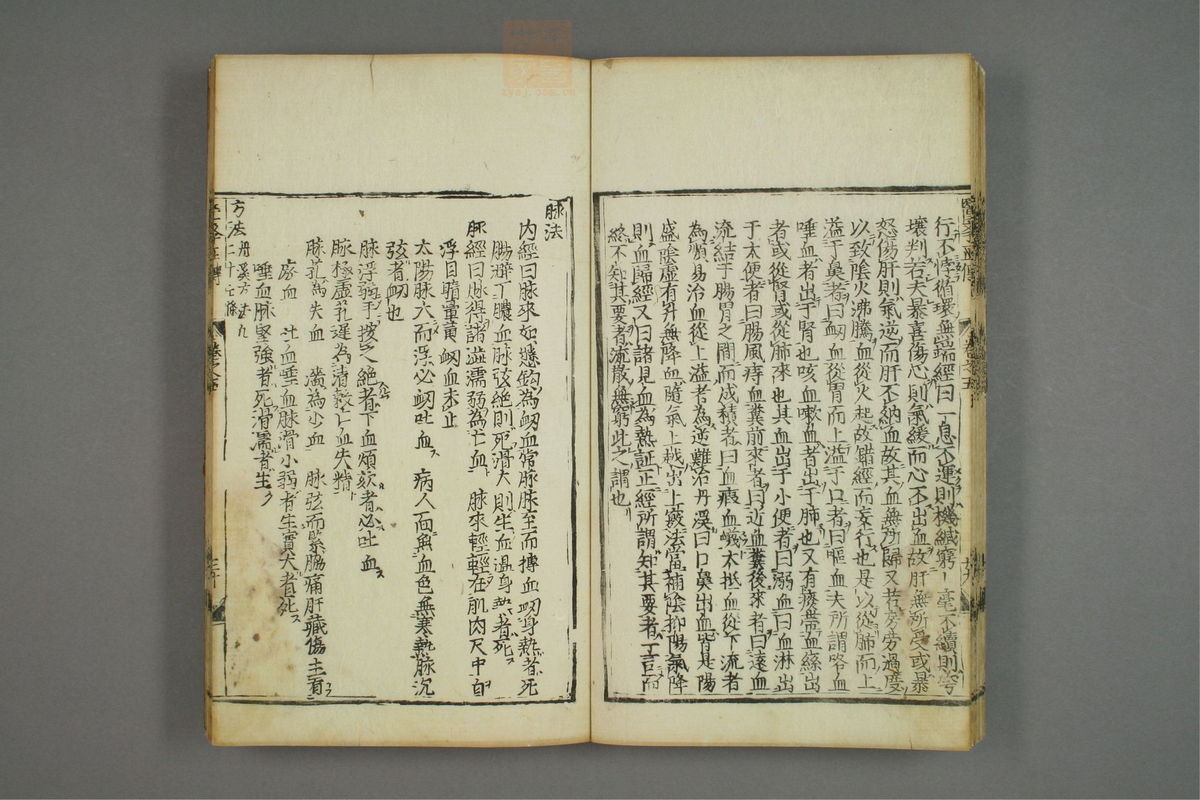 行不悖循環無端經曰一息不運則機緘窮一毫不續則穹
壤判若夫暴喜傷心則氣緩而心不出血故肝無所受或暴
怒傷肝則氣逆而肝不納血故其血無所歸又若房勞過度
以致陰火沸騰血從火起故錯經而妄行也是以從肺而上
溢于鼻者曰衄血從胃而上溢于口者曰嘔血夫所謂咯血
唾血者出于腎也咳血嗽血者出于肺也又有痰帶血絲出
者或從腎或從肺來也其血出于小便者曰溺血曰血淋出
于大便者曰腸風痔血糞前來者曰近血糞後來者曰遠血
流結于腸胃之間而成積者曰血瘕血衊不抵血從下流者
為順易治血從上溢者為逆難治丹溪曰口鼻出血皆是陽
盛陰虛有升無降血隨氣上越出上竅法當補陰抑陽氣降
則血歸經又曰諸見血為熱証正經所謂知其要者一言而
終不知其要者流散無窮此之謂也
脉法
内經曰脉來如懸鈎為衄血常脉脉至而搏血衄身熱者死
腸澼下膿血脉弦絶則死滑大則生血溫身熱者死
脈經曰脉得諸澁濡弱為亡血 脉來輕輕在肌肉尺中自
浮目睛暈黃 衄血未止
太陽脉大而浮必衄吐血 病人面無血色無寒熱脉沉
弦者衄也
脉浮弱手按之絶者下血煩欬者必吐血
脉極虛芤遲為清穀亡血失精
脉芤為失血 濇為少血 脉弦而緊脇痛肝藏傷主有
瘀血 吐血唾血脉滑小弱者生實大者死
唾血脉堅強者死滑濡者生
方法 丹溪方法九
二十七條